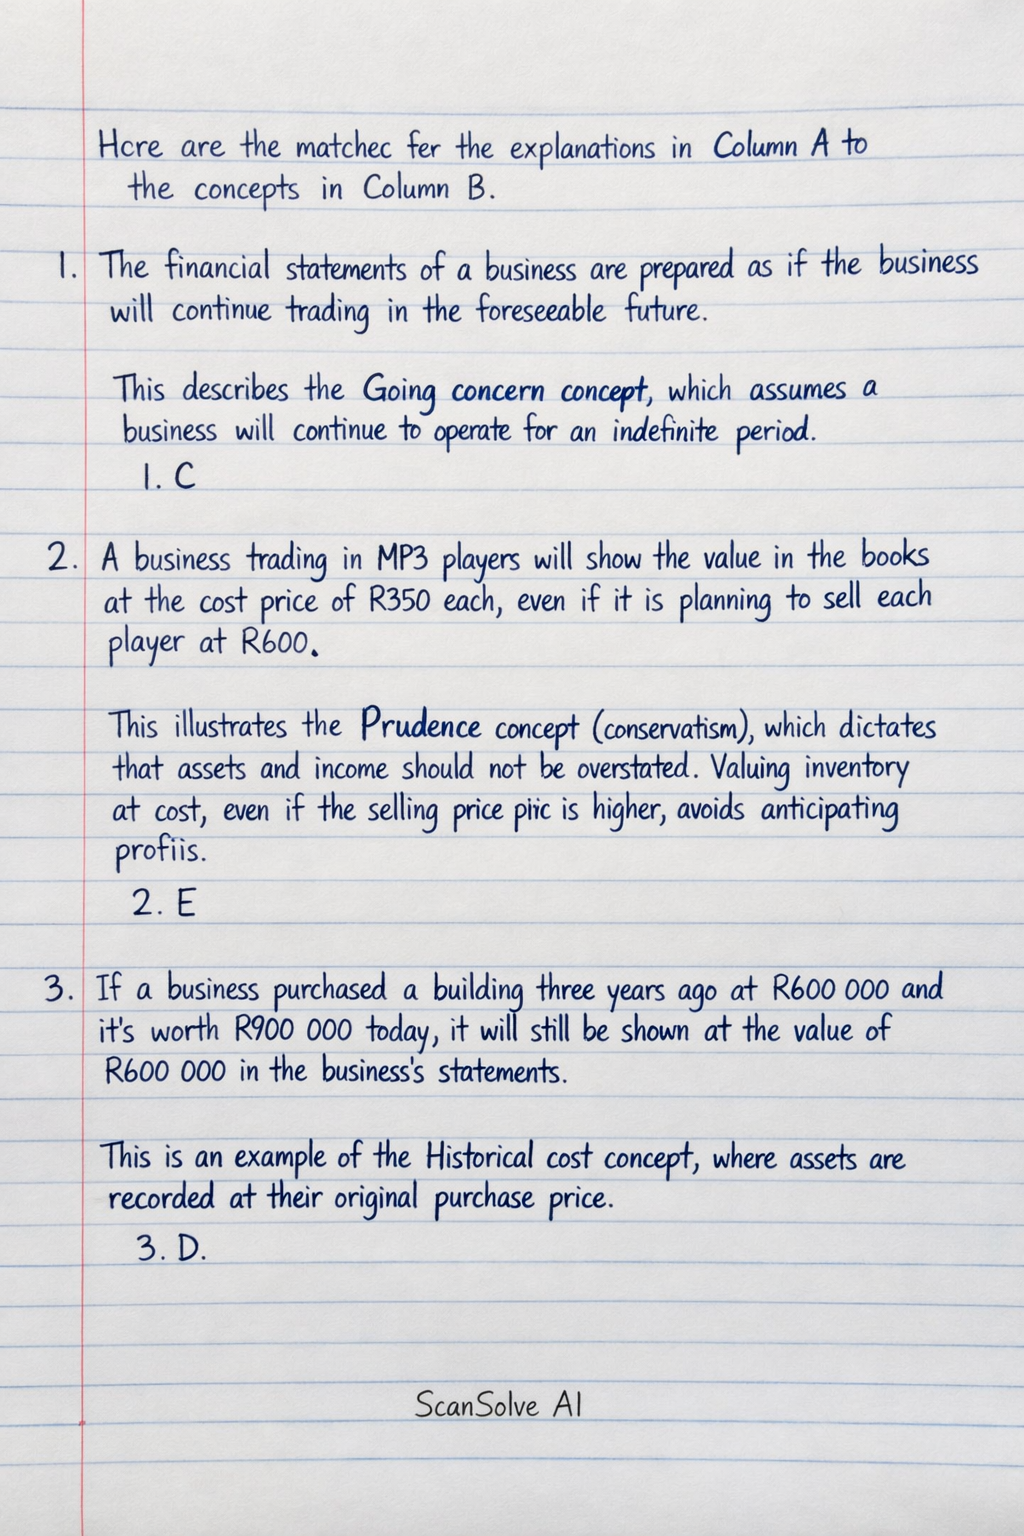 Hcre are the matchec fer the explanations in Column A to
the concepts in Column B.
1. The financial statements of a business are prepared as if the business
will continue trading in the foreseeable future.
This describes the Going concern concept, which assumes a
business will continue to operate for an indefinite period.
1. C
2. A business trading in MP3 players will show the value in the books
at the cost price of R350 each, even if it is planning to sell each
player at R600.
This illustrates the Prudence concept (conservatism), which dictates
that assets and income should not be overstated. Valuing inventory
at cost, even if the selling price piic is higher, avoids anticipating
profiis.
2. E
3. If a business purchased a building three years ago at R600 000 and
it's worth R900 000 today, it will still be shown at the value of
R600 000 in the business's statements.
This is an example of the Historical cost concept, where assets are
recorded at their original purchase price.
3. D.
ScanSolve AI